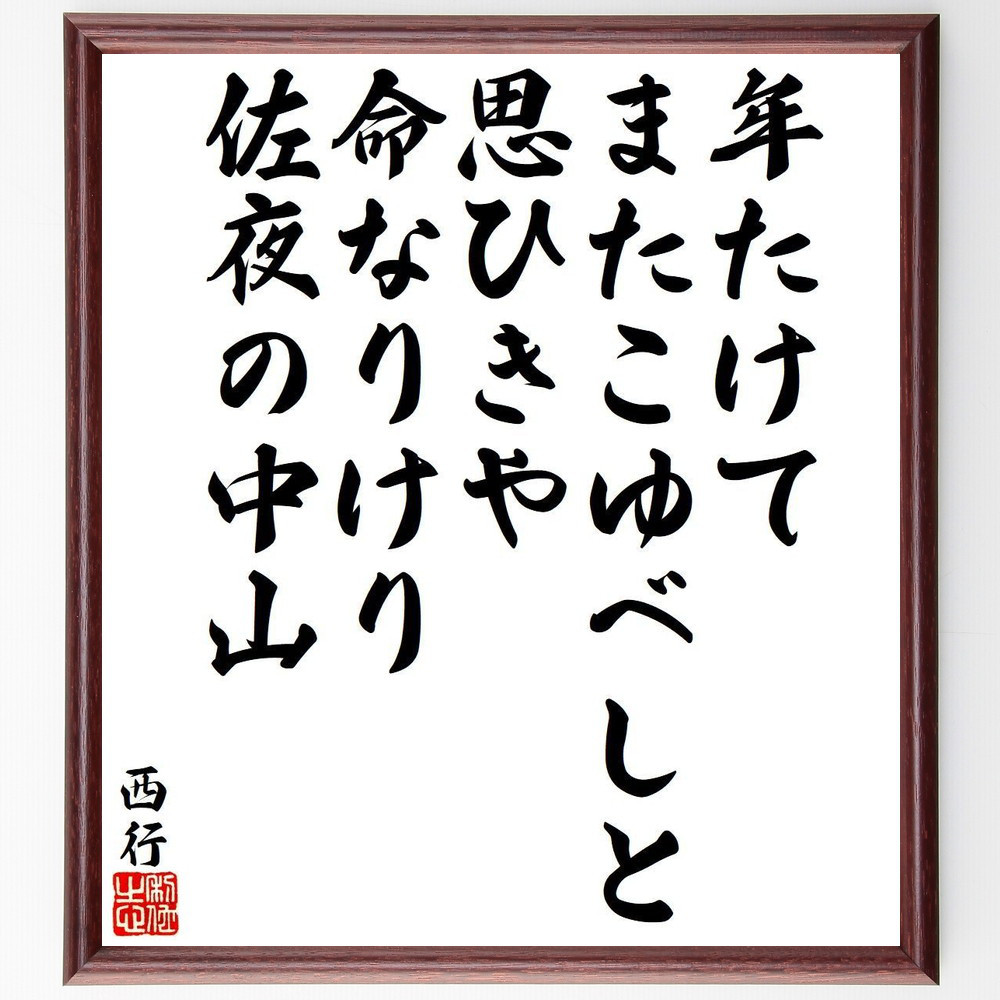 年たけて
またこゆべしと
思ひきや
命なりけり
佐夜の中山
西行